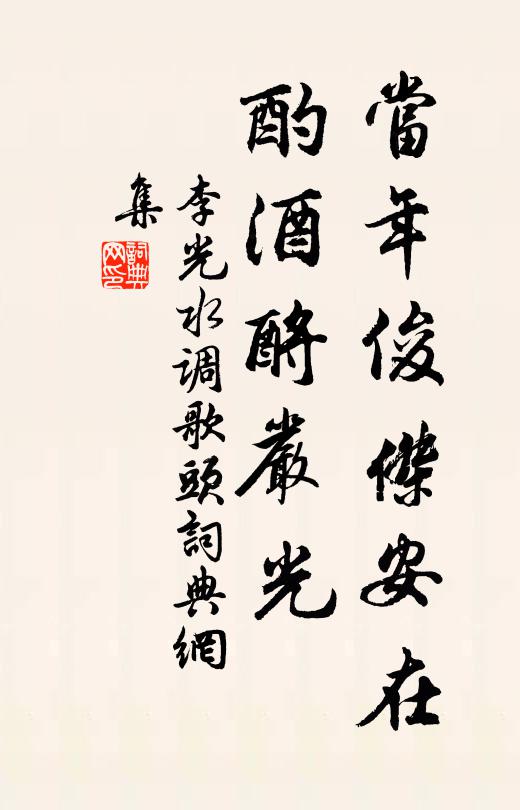 當年俊傑安在
酌酒酹嚴光
李光水调歌頭詞典網
集
詞典网印